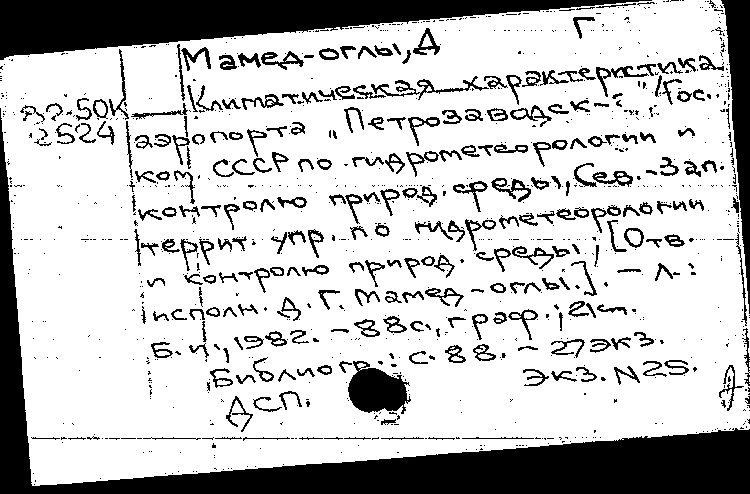 Мамед-оглы, Д Г
Климатическая характеристика
82-50К аэропорта „Петрозаводск-2"/Гос.
2524 ком. СССР по гидрометеорологии и
контролю природ. среды, Сев.-Зап.
террит. упр. по гидрометеорологии
и контролю природ. среды; [Отв.
исполн. Д. Г. Мамед-оглы.]. - Л.:
Б. и., 1982. - 88с., граф.; 21см.
Библиогр.: с. 88. - 27экз.
ДСП. Экз. N25.